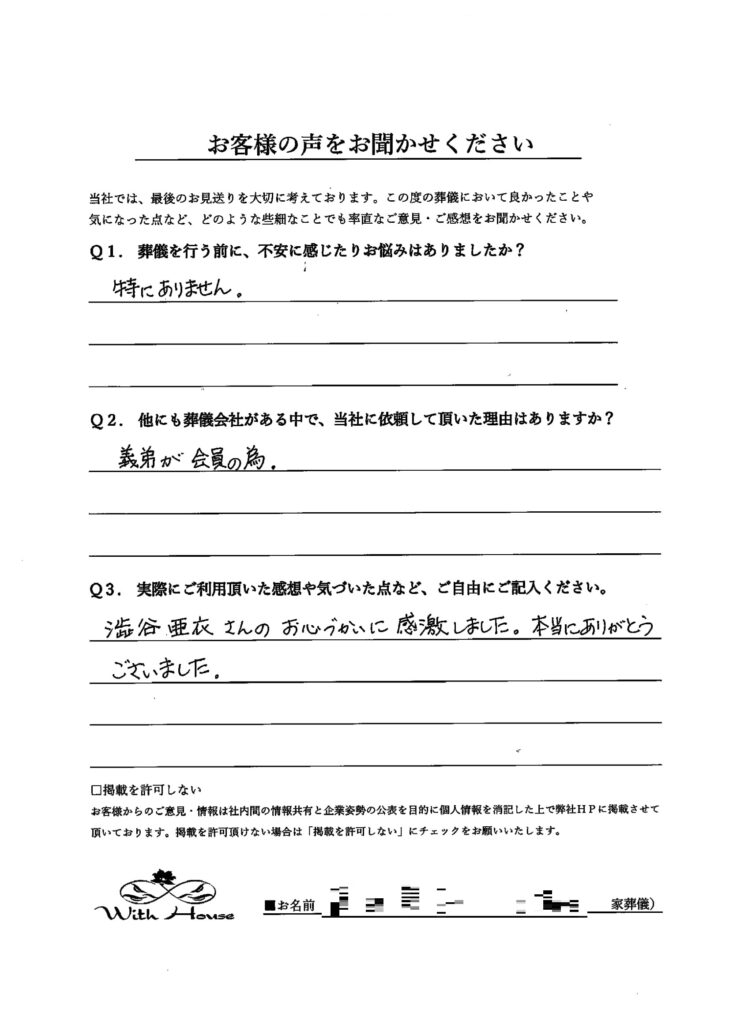 お客様の声をお聞かせください
当社では、最後のお見送りを大切に考えております。この度の葬儀において良かったことや
気になった点など、どのような些細なことでも率直なご意見・ご感想をお聞かせください。
Q1. 葬儀を行う前に、不安に感じたりお悩みはありましたか？
特にありません。
Q2. 他にも葬儀会社がある中で、当社に依頼して頂いた理由はありますか？
義弟が会員の為。
Q3. 実際にご利用頂いた感想や気づいた点など、ご自由にご記入ください。
澁谷亜衣さんのお心づかいに感激しました。本当にありがとう
ございました。
□掲載を許可しない
お客様からのご意見・情報は社内間の情報共有と企業姿勢の公表を目的に個人情報を消記した上で弊社HPに掲載させて
頂いております。掲載を許可頂けない場合は「掲載を許可しない」にチェックをお願いいたします。
With House
■お名前 家葬儀）